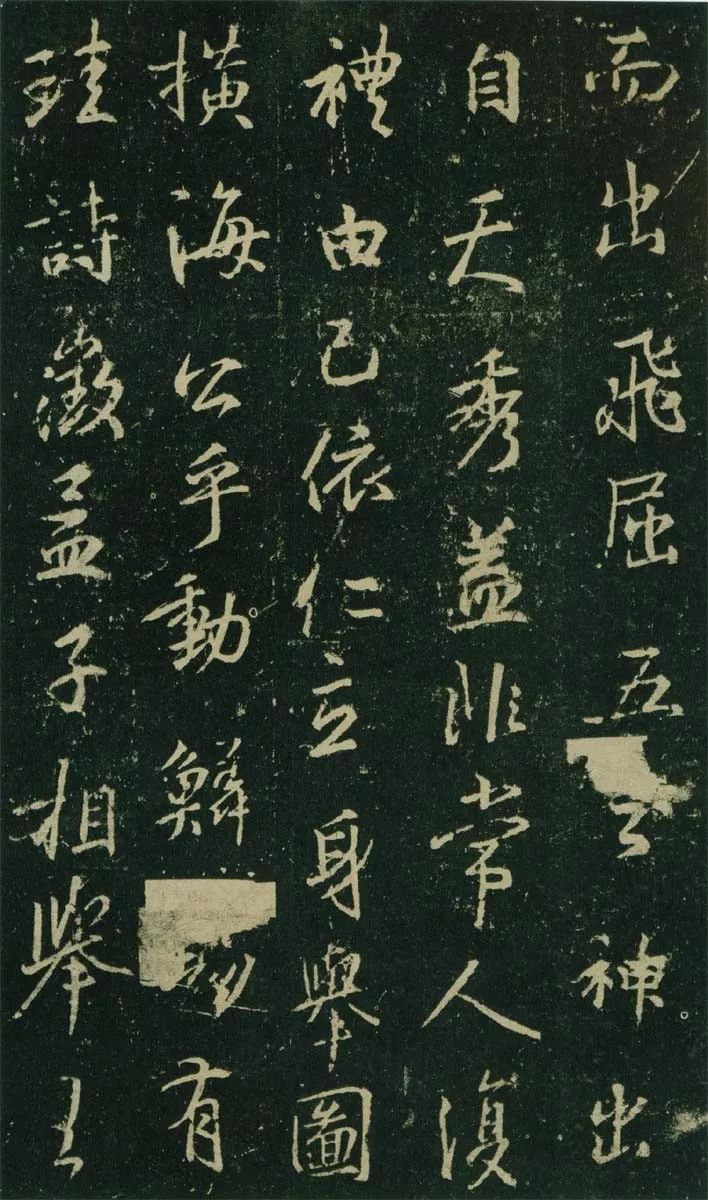 而出飛屈五神出
自天秀蓋非常人復
禮由己依仁立身舉圖
橫海公乎動鱗有
珪詩徵孟子相舉王